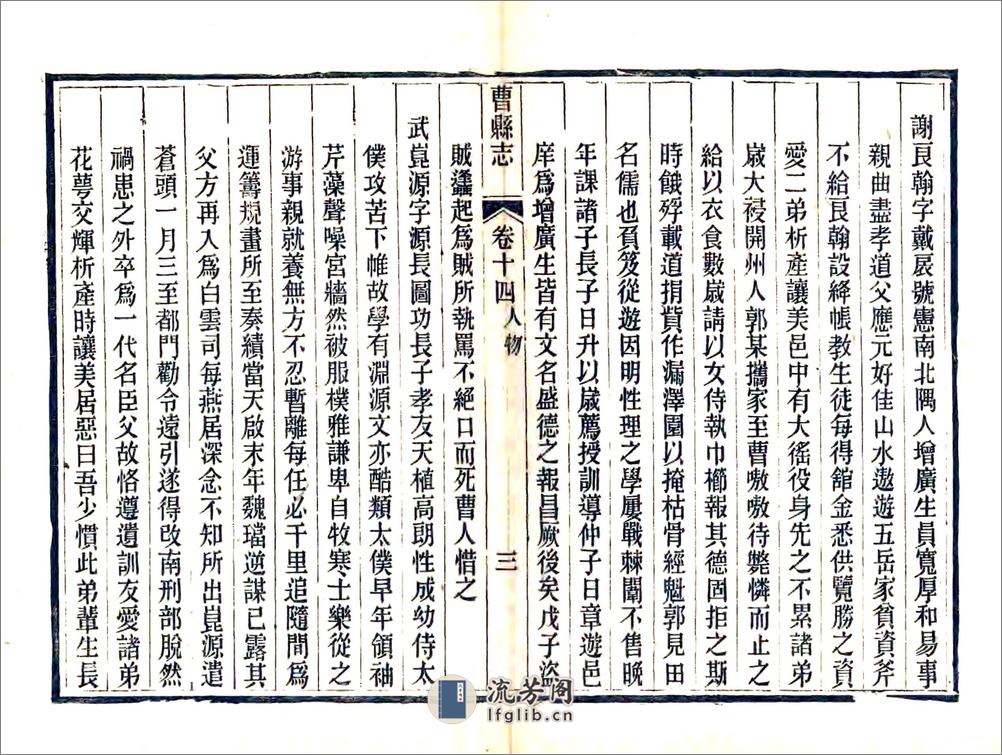 謝良翰字戴扆號憲南北隅人增廣生員寬厚和易事
親曲盡孝道父應元好佳山水遨遊五岳家貧資斧
不給良翰設絳帳教生徒每得舘金悉供覽勝之資
愛二弟析產讓美邑中有大徭役身先之不累諸弟
嵗大祲開州人郭某攜家至曹嗷嗷待斃憐而止之
給以衣食數嵗請以女侍執巾櫛報其德固拒之斯
時餓殍載道捐貲作漏澤園以掩枯骨經魁郭見田
名儒也負笈從遊因明性理之學屢戰棘闈不售晚
年課諸子長子日升以嵗薦授訓導仲子日章遊邑
庠爲增廣生皆有文名盛德之報昌厥後矣戊子盜
賊蠭起爲賊所執罵不絕口而死曹人惜之
曹縣志 卷十四 人物 三
武崑源字源長圖功長子孝友天植高朗性成幼侍太
僕攻苦下帷故學有淵源文亦酷類太僕早年領袖
芹藻聲噪宮牆然被服樸雅謙卑自牧寒士樂從之
游事親就養無方不忍暫離每任必千里追隨間爲
運籌規畫所至奏績當天啟末年魏璫逆謀已露其
父方再入爲白雲司每燕居深念不知所出崑源遣
蒼頭一月三至都門勸令遠引遂得改南刑部脫然
禍患之外卒爲一代名臣父故恪遵遺訓友愛諸弟
花萼交輝析產時讓美居惡曰吾少慣此弟輩生長
流芳阁
lfglib.cn